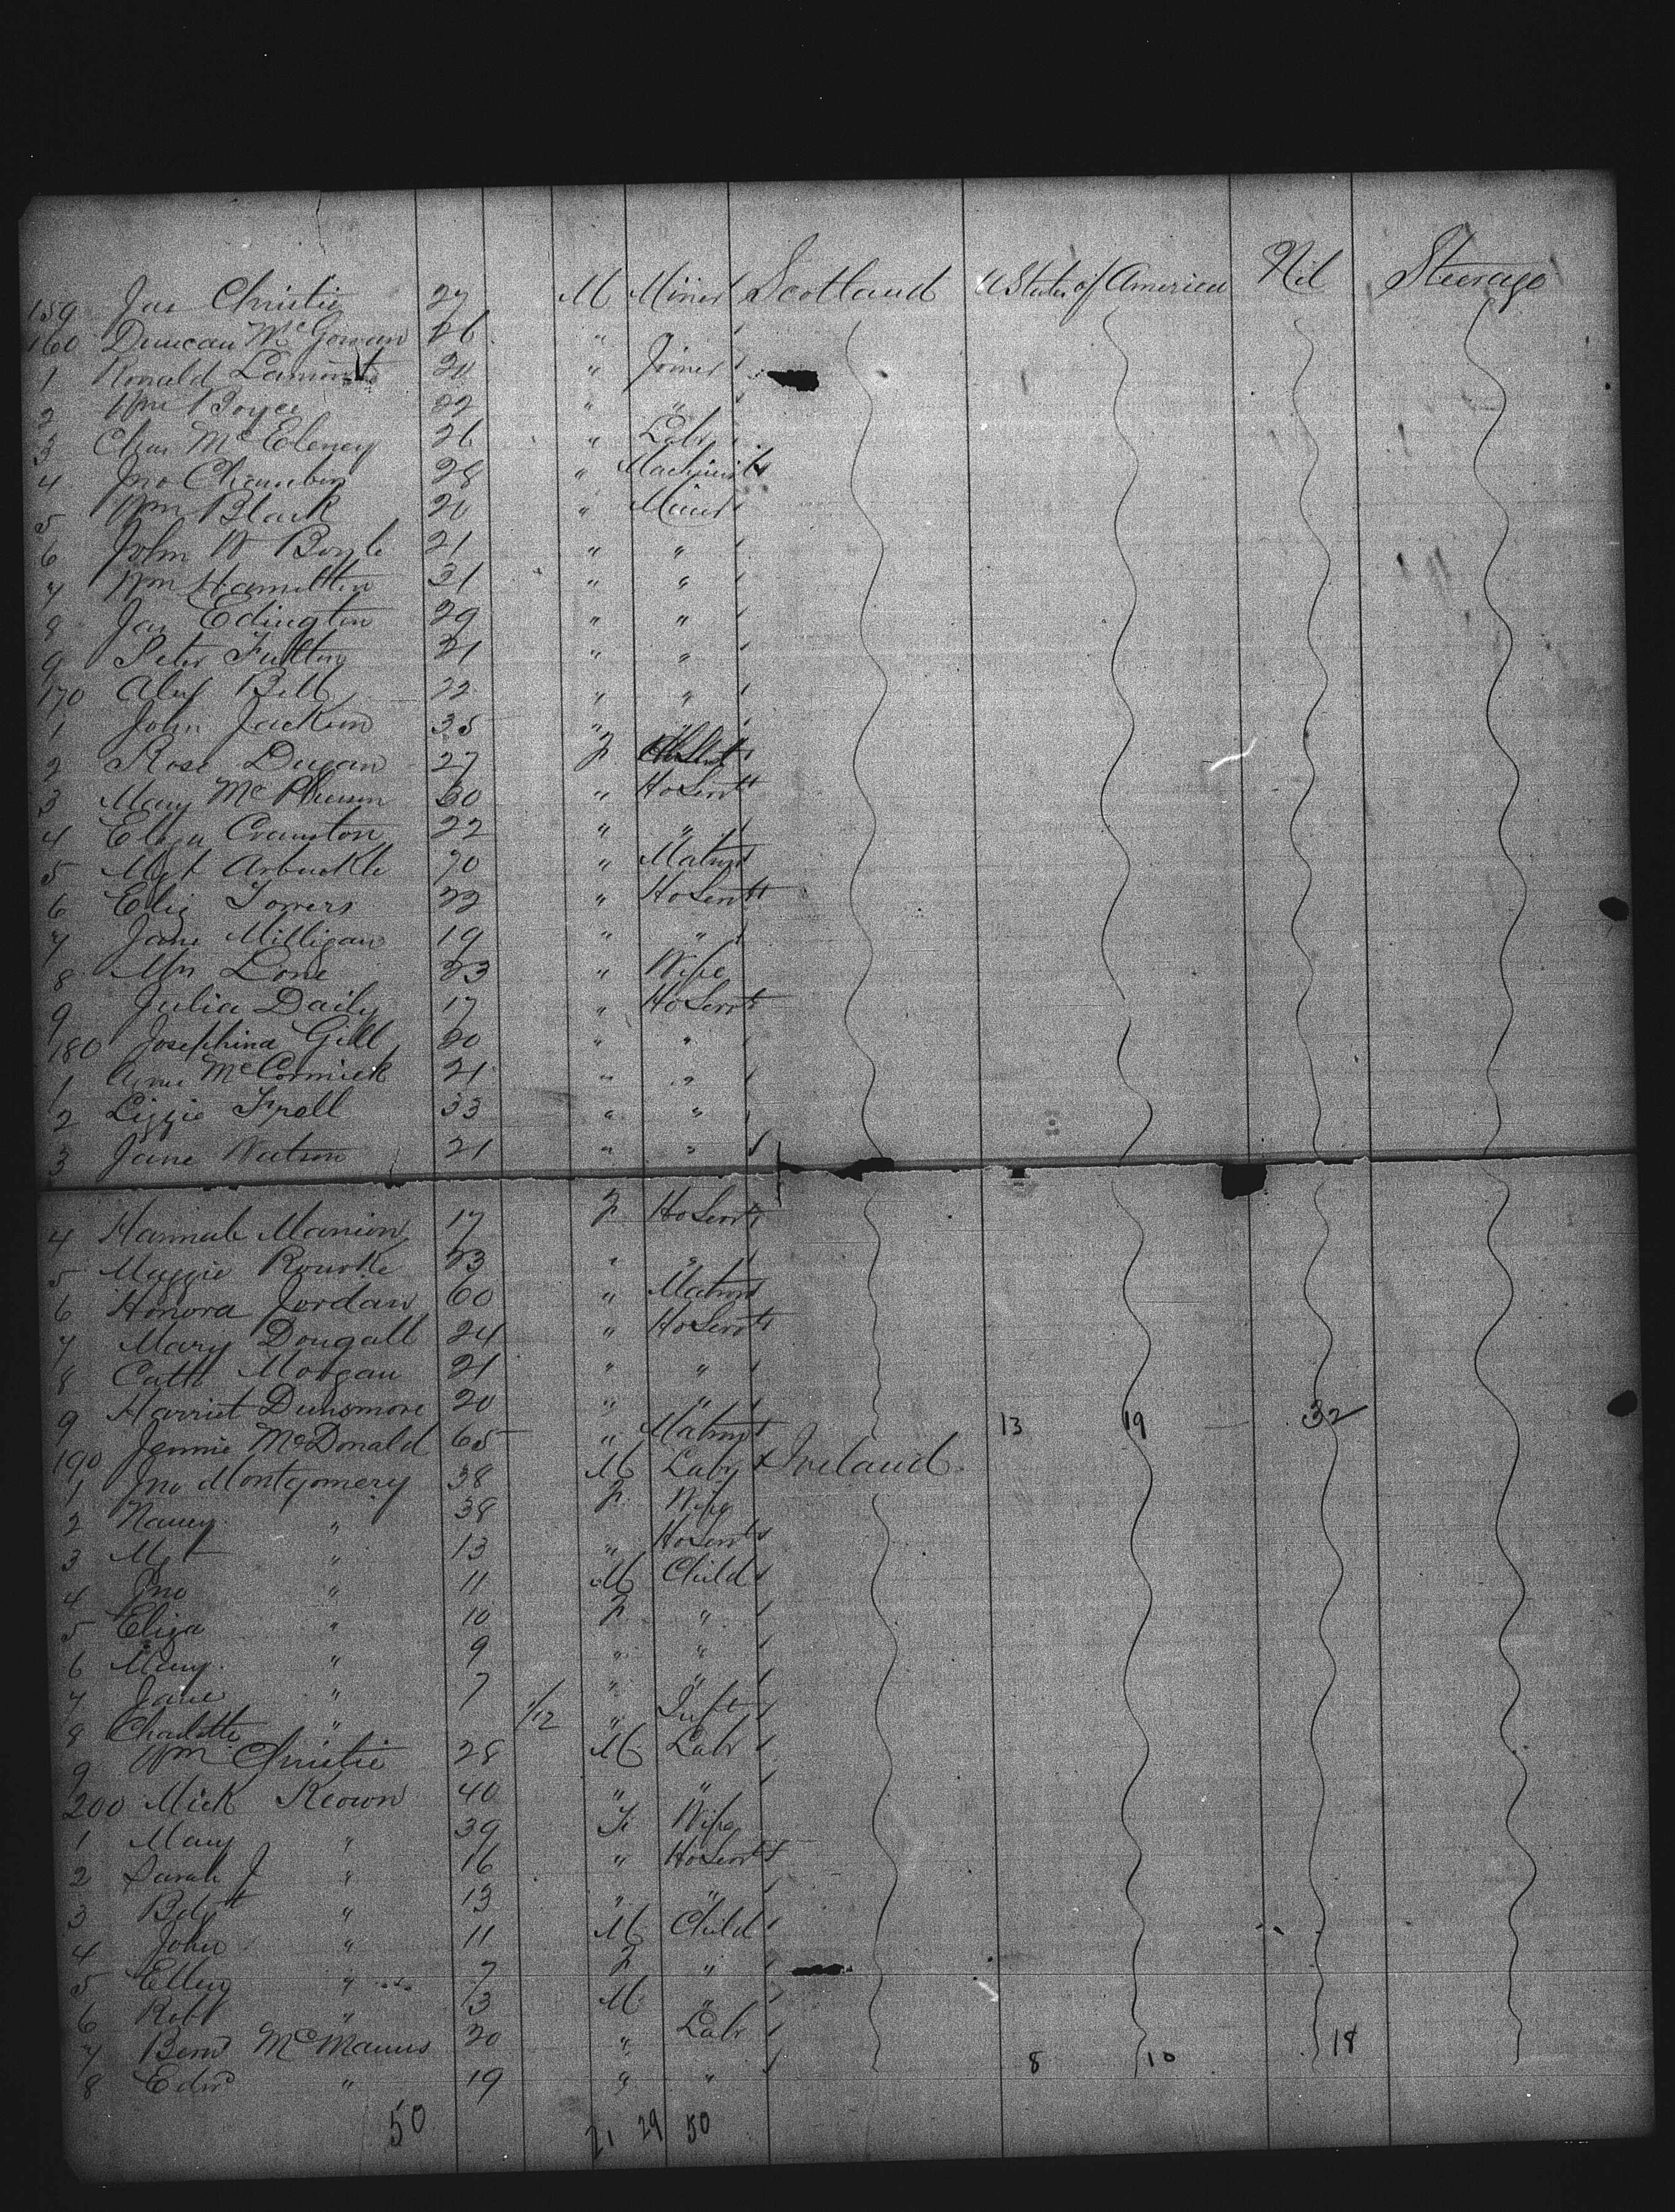 159 Jas Christie 27 M Miner Scotland U States of America Nil Steerage
160 Duncan McGowan 26 " "
1 Ronald Lamont 20 " Joiner
2 Wm Boyce " "
3 Chas McEleney 26 " Labr
4 Jno Chambers 28 " Machinist
5 Wm Black 20 " Miner
6 John W Boyle 21 " "
7 Wm Hamilton 21 " "
8 Jas Edington 29 " "
9 Peter Fulton 21 " "
170 Alex Bell 22 " "
1 John Jackson 35 " "
2 Rose Dugan 27 F
3 Mary McPherson 30 " Ho Servt
4 Eliza Cranston 22 " "
5 Mgt Arbuckle 70 " Matron
6 Eliz Towers 22 " Ho Servt
7 Jane Milligan 19 " "
8 Mrs Lone 23 " Wife
9 Julia Daily 17 " Ho Servt
180 Josephina Gill 20 " "
1 Annie McCormick 21 " "
2 Lizzie 33 " "
3 Jane Watson 21 " "
4 Hannah Manion 17 F Ho Servt
5 Maggie Rourke 23 " "
6 Honora Jordan 60 " Matron
7 Mary Dougall 24 " Ho Servt
8 Cath Morgan 21 " "
9 Harriet Dunsmore 20 " " 13 19 32
190 Jennie McDonald 65 " Matron
1 Jno Montgomery 38 M Labr Ireland
2 Nancy " 38 F Wife
3 Mgt " 13 " Ho Servt
4 Jno " 11 M Child
5 Eliza " 10 F "
6 Mary " 9 " "
7 Jane " 7 " "
8 Charlotte " " Inft
9 Wm Christie 28 M Labr
200 Mick Keown 40 " "
1 Mary " 39 F Wife
2 Sarah J " 16 " Ho Servt
3 Bdgt " 13 " "
4 John " 11 M Child
5 Ellen " 7 F "
6 Robt " 3 M "
7 Bernd McManus 20 " Labr 8 10 18
8 Edwd " 19 " "
50 21 29 50